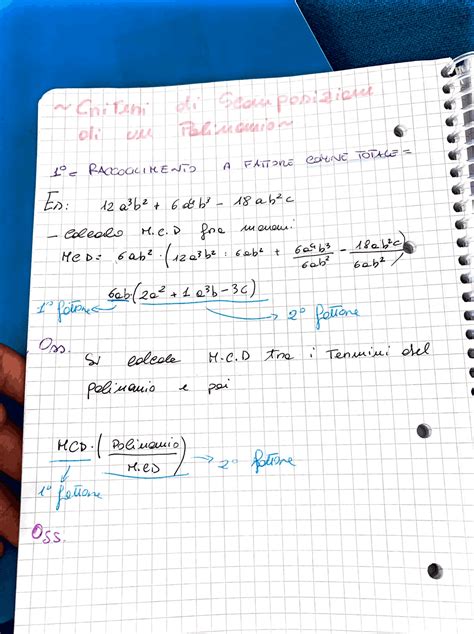 ~ Criteri di Scomposizioni
di un Polinomio ~
1° = RACCOGLIMENTO A FATTORE COMUNE TOTALE =
Es: 12a³b² + 6a⁴b³ - 18ab²c
- Calcolo M.C.D fra monomi:
MCD: 6ab² · (12a³b² : 6ab² + 6a⁴b³/6ab² - 18ab²c/6ab²)
6ab(2a² + 1a³b - 3c)
1° fattore
2° fattore
Oss.
Si calcola M.C.D tra i Termini del
polinomio e poi
MCD · (Polinomio/M.CD) → 2° fattore
1° fattore
Oss.